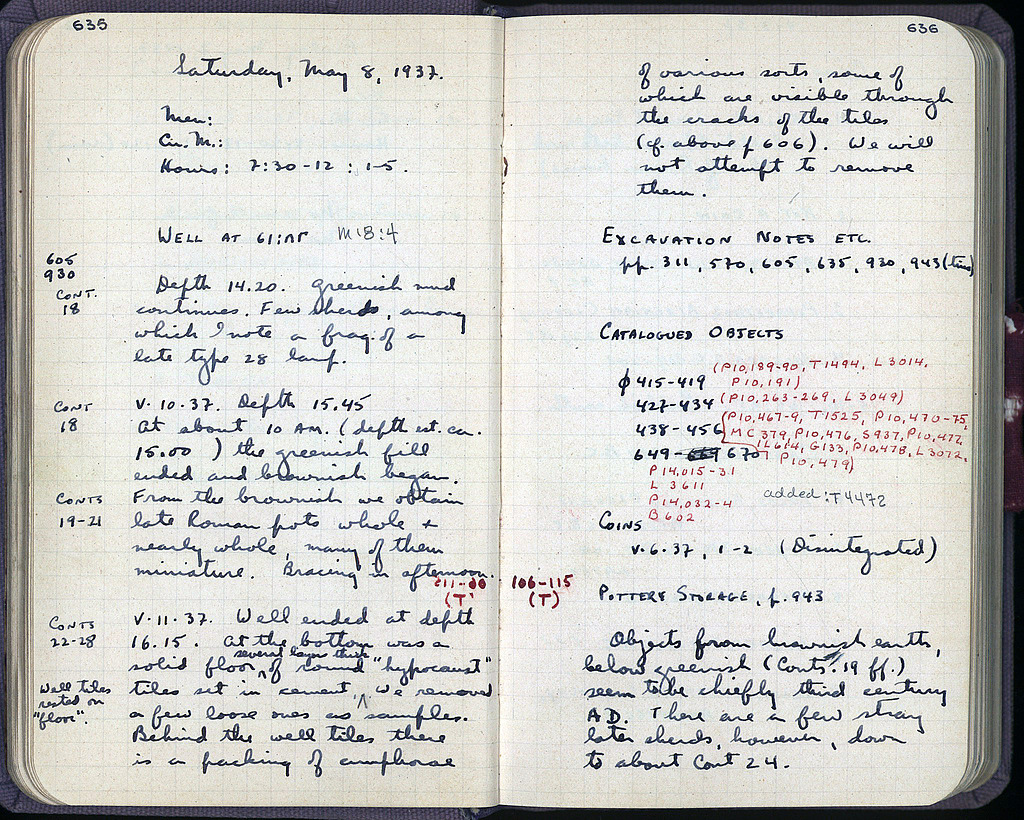 635
Saturday, May 8, 1937.
Men:
Hours: 7:30-12 : 1-5.
WELL AT 61:ΛΓ M18:4
605
930
CONT.
18
Depth 14.20. Greenish mud
continues. Few sherds, among
which I note a frag. of a
late type 28 lamp.
CONT
18
V.10.37. Depth 15.45
At about 10 AM. (depth est. ca.
15.00) the greenish fill
ended and brownish began.
CONTS
19-21
From the brownish we obtain
late Roman pots whole +
nearly whole, many of them
miniature. Bracing in afternoon.
(T)
CONTS
22-28
V.11.37. Well ended at depth
16.15. At the bottom was a
several layers thick
solid floor of round "hypocaust"
Well tiles
rested on
"floor".
tiles set in cement. We removed
a few loose ones as samples.
Behind the well tiles there
is a packing of amphorae
636
of various sorts, some of
which are visible through
the cracks of the tiles
(cf. above p 606). We will
not attempt to remove
them.
EXCAVATION NOTES ETC.
pp. 311, 570, 605, 635, 930, 943
CATALOGUED OBJECTS
φ 415-419 (P10,189-90, T1494, L3014,
P10,191)
427-434 (P10,263-269, L3049)
438-456 (P10,467-9, T1525, P10,470-75,
MC379, P10,476, S937, P10,477,
IL614, G133, P10,478, L3072,
P10,479)
649-670
P14,015-31
L 3611
P14,032-4
B 602
added: T4472
COINS
V.6.37, 1-2 (Disintegrated)
106-115
(T)
POTTERY STORAGE, p. 943
Objects from brownish earth,
below greenish (Conts. 19 ff.)
seem to be chiefly third century
A.D. There are a few stray
later sherds, however, down
to about Cont 24.